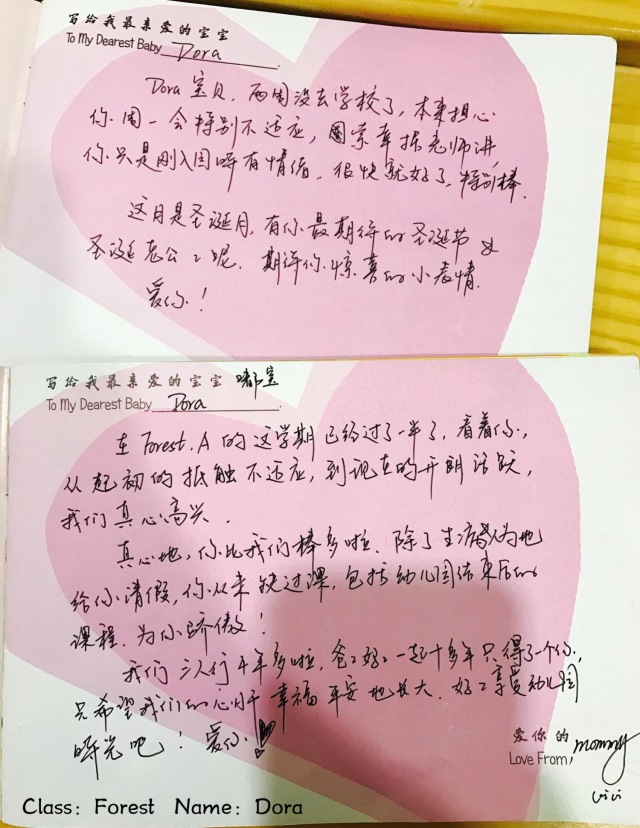 写给我最亲爱的宝宝
To My Dearest Baby Dora
Dora宝贝，两周没去学校了，本来担心
你周一会特别不适应，老师讲，
你只是刚入园时有情绪，很快就好了，特别棒。
这月是圣诞月，有你最期待的圣诞节&
圣诞老公公呢。期待你惊喜的小表情。
爱你！
写给我最亲爱的宝宝 嘟宝
To My Dearest Baby Dora
在Forest.A的这学期已经过了一半了，看着你，
从起初的抵触不适应，到现在的开朗活跃，
我们真心高兴。
真心地，你比我们棒多啦。除了生病人为地
给你请假，你从未缺过课，包括幼儿园结束后的
课程。为你骄傲！
我们三人行4年多啦，爸爸妈妈一起十多年只得了一个你，
只希望我们的心肝幸福平安地长大。好好享受幼儿园
时光吧！爱你
爱你的
Love From, mommy
ViVi
Class: Forest Name: Dora